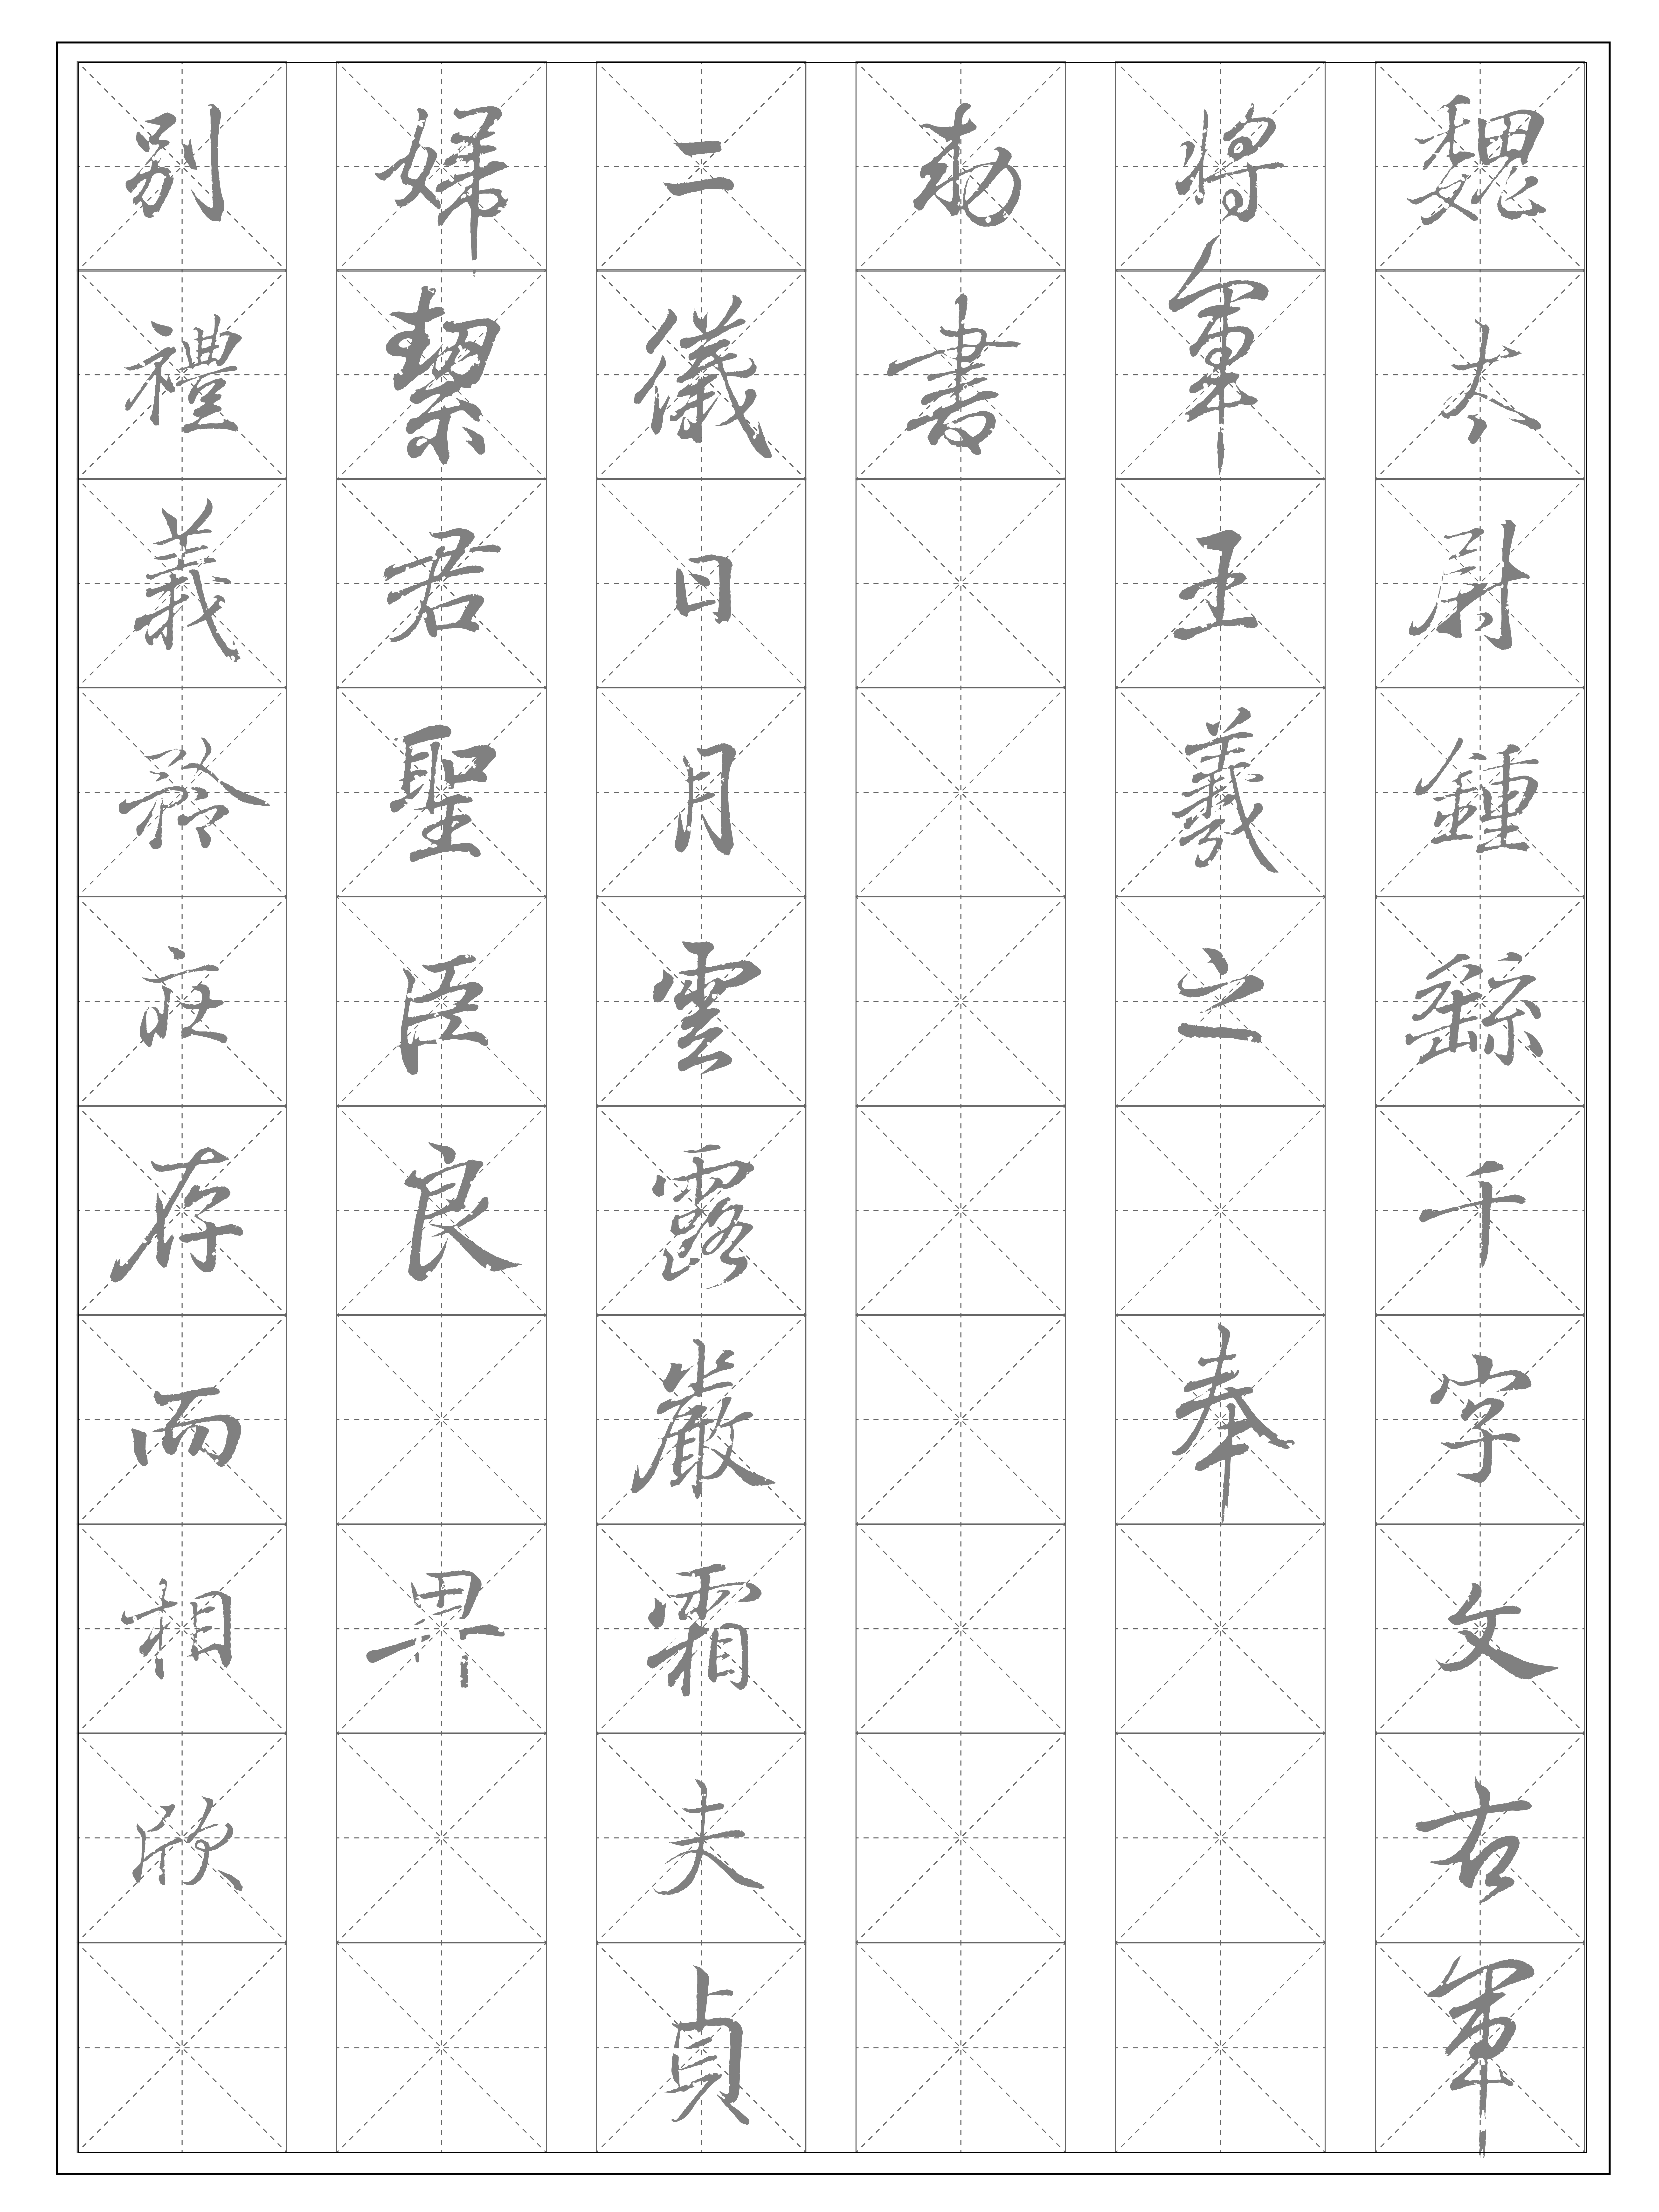 魏太尉鍾繇千字文右軍
將軍王羲之奉
勑書
二儀日月雲露嚴霜夫貞
婦絜君聖臣良畀
別禮義矜莊存而相欣